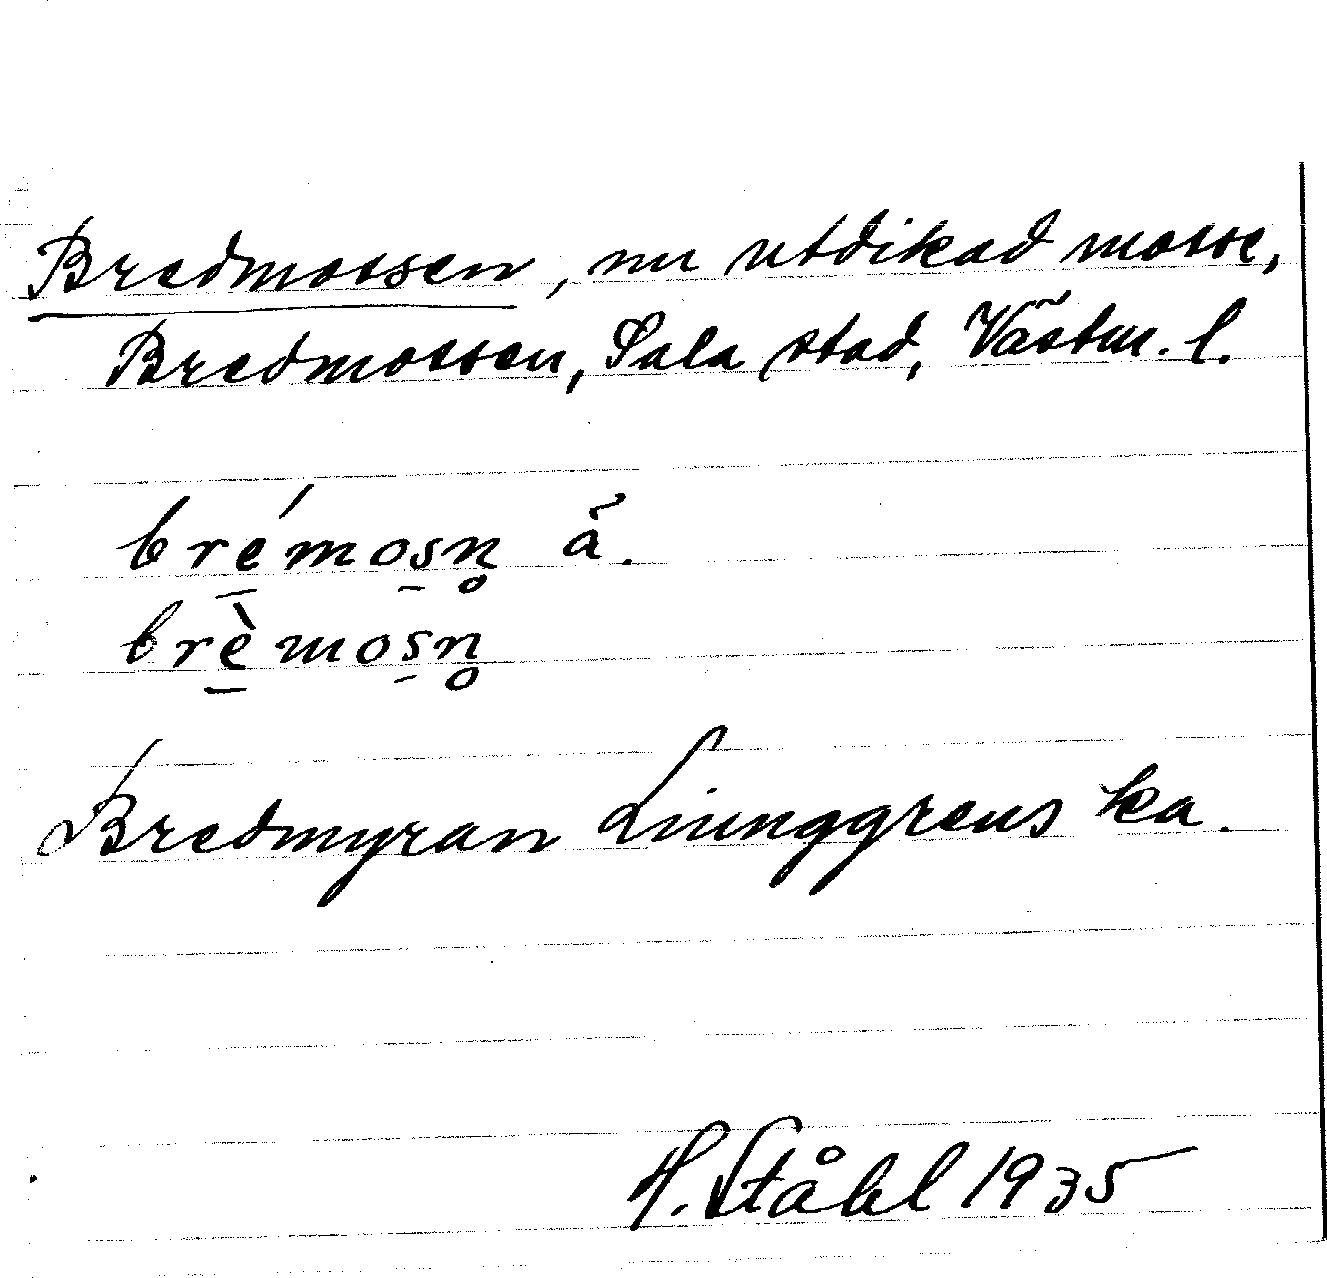 Bredmossen, nu utdikad mosse,
Bredmossen, Sala stad, Västm. l.
bre̲´mos̲n̥ ã.
brè̲mos̲n̥
Bredmyran Liunggrens ka.
H. Ståhl 1935